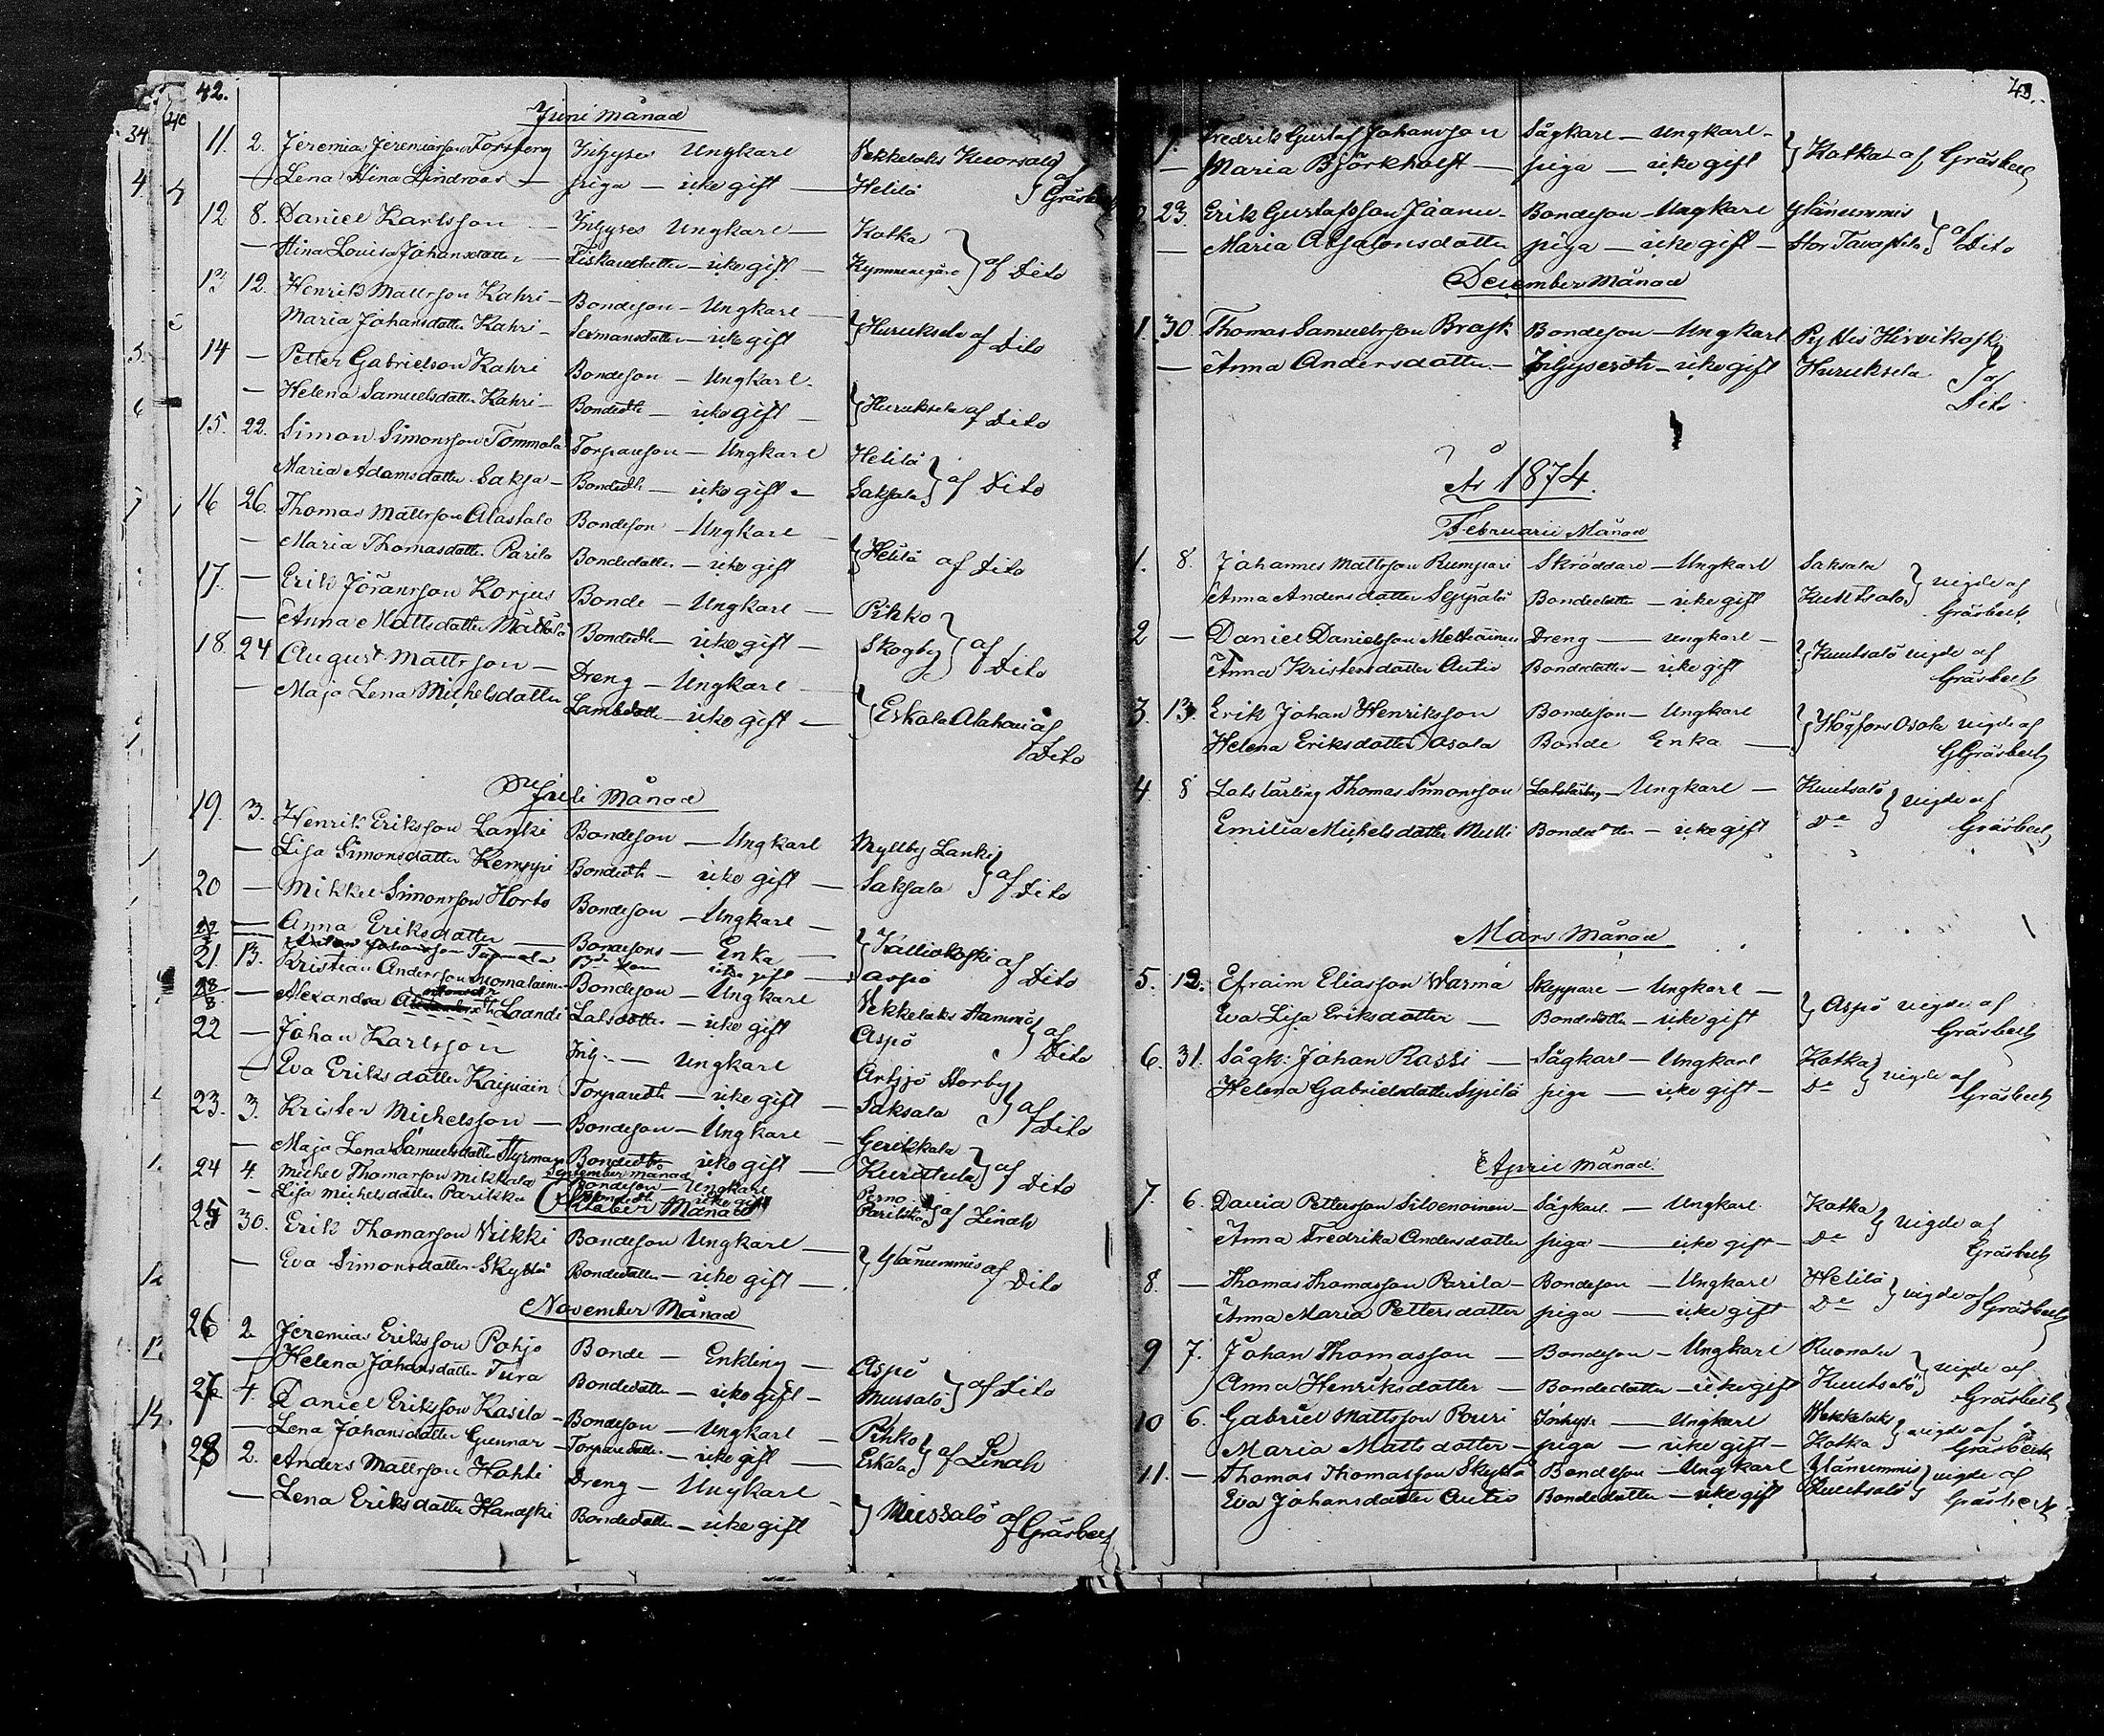 42.
Juni Månad
11. 2. Jeremias Jeremiasson Forsberg Inhyses Ungkarl Vekkelaks Kuorsalo
— Lena Stina Lindroos — piga — icke gift — Helilä } af Gråsbeck
12 8. Daniel Karlsson — Inhyses Ungkarl — Kotka
— Stina Lovisa Johansdotter — Fiskaredotter — icke gift — Kymmenegård } af Dito
13 12. Henrik Mattsson Kahri — Bondeson — Ungkarl —
Maria Johansdotter Kahri — Sexmansdotter — icke gift } Huruksela af Dito
14 — Petter Gabrielson Kahri Bondeson — Ungkarl.
— Helena Samuelsdotter Kahri — Bondedtr — icke gift — } Huruksela af Dito
15. 22. Simon Simonsson Tommola Torpareson — Ungkarl Helilä
Maria Adamsdotter Saksa — Bondedtr — icke gift — Saksala } af Dito
16 26. Thomas Mattsson Alastalo Bondeson — Ungkarl —
— Maria Thomasdotter Parila Bondedotter — icke gift } Helilä af Dito
17. — Erik Jöransson Korjus Bonde — Ungkarl — Pihko
— Anna Mattsdotter Mattola Bondedtr — icke gift — Skogby } af Dito
18. 24 August Mattsson — Dreng — Ungkarl —
— Maja Lena Michelsdotter — icke gift — } Eskola Alahovi af Dito
Juli Månad
19. 3. Henrik Eriksson Lanki Bondeson — Ungkarl Myllby Lanki
— Lisa Simonsdotter Kemppi Bondedtr — icke gift — Saksala } af Dito
20 — Mikkel Simonsson Horto Bondeson — Ungkarl —
— Anna Eriksdotter — Bondesons — Enka — } Kalliokoski af Dito
21 13. Kristian Andersson Suomalainen Bondeson — Ungkarl Vekkelaks Stammö
— Alexandra Loandi Lotsdotter — icke gift Aspö } af Dito
22 — Johan Karlsson Inh. — Ungkarl Artsjö Storby
— Eva Eriksdotter Kaipiain Torparedtr — icke gift — Saksala } af Dito
23. 3. Krister Michelsson — Bondeson — Ungkarl — Gerikkala
— Maja Lena Samuelsdotter Styrman Bondedtr icke gift — } af Dito
September månad
24 4. Michel Thomasson Mikkola Bondeson — Ungkarl Perno
— Lisa Michelsdotter Parikka Bondedtr icke gift Parikka } af Linah
Oktober Månad
25 30. Erik Thomasson Vilkki Bondeson Ungkarl —
— Eva Simonsdotter Skyttä Bondedotter — icke gift — } Ylänummis af Dito
November Månad
26 2 Jeremias Eriksson Pohjo Bonde — Enkling — Aspö
— Helena Johansdotter Tura Bondedotter — icke gift — Mussalö } af Dito
27 4 Daniel Eriksson Kasila — Bondeson — Ungkarl — Pihko
— Lena Johansdotter Gunnar — Torparedotter — icke gift — Eskola } af Linah
28 2. Anders Mattsson Hohti Dreng — Ungkarl —
— Lena Eriksdotter Handski Bondedotter — icke gift } Mussalö af Gråsbeck
43.
9. Fredrik Gustaf Johansson Sågkarl — Ungkarl —
— Maria Björkholft — piga — icke gift } Kotka af Gråsbeck
23. Erik Gustafsson Jäänu — Bondeson — Ungkarl Ylänummis
— Maria Absalonsdotter piga — icke gift — Stor Tavastila } af Dito
December Månad
1. 30 Thomas Samuelsson Brask Bondeson — Ungkarl Pyttis Hirvikoski
— Anna Andersdotter — Inhysesdtr — icke gift Huruksela } af Dito
År 1874.
Februarii Månad
1. 8. Johannes Mattsson Rumpari Skröddare — Ungkarl Saksala
Anna Andersdotter Seppälä Bondedotter — icke gift Kuutsalo } vigde af Gråsbeck
2 — Daniel Danielsson Dreng — ungkarl —
Anna Kristersdotter Autio Bondedotter — icke gift } Kuutsalo vigde af Gråsbeck
3. 13. Erik Johan Henriksson Bondeson — Ungkarl
Helena Eriksdotter Osola Bonde Enka — } Högfors Osola vigde af Gråsbeck
4 8 Lotslärling Thomas Simonsson Lotslärling — Ungkarl — Kuutsalö
Emilia Michelsdotter Mulli Bondedotter — icke gift Do } vigde af Gråsbeck
Mars Månad
5. 12. Efraim Eliasson Warma Skeppare — Ungkarl —
Eva Lisa Eriksdotter — Bondedotter — icke gift } Aspö vigde af Gråsbeck
6. 31. Sågk: Johan Rassi — Sågkarl — Ungkarl Kotka
Helena Gabrielsdotter Sipilä piga — icke gift — Do } vigde af Gråsbeck
April Månad
7. 6. David Pettersson Silvenoinen — Sågkarl — Ungkarl. Kotka
Anna Fredrika Andersdotter piga — icke gift — Do } vigde af Gråsbeck
8. — Thomas Thomasson Parila — Bondeson — Ungkarl Helilä
Anna Maria Pettersdotter piga — icke gift Do } vigde af Gråsbeck
9 7. Johan Thomasson — Bondeson — Ungkarl Ruonala
Anna Henriksdotter — Bondedotter — icke gift Kuutsalö } vigde af Gråsbeck
10 6. Gabriel Mattsson Pouri Inhyse — Ungkarl Wekkelaks
Maria Mattsdotter — piga — icke gift — Kotka } vigde af Gråsbeck
11. — Thomas Thomasson Skyttä Bondeson — Ungkarl Ylänummis
Eva Johansdotter Autio Bondedotter — icke gift Kuutsalö } vigde af Gråsbeck